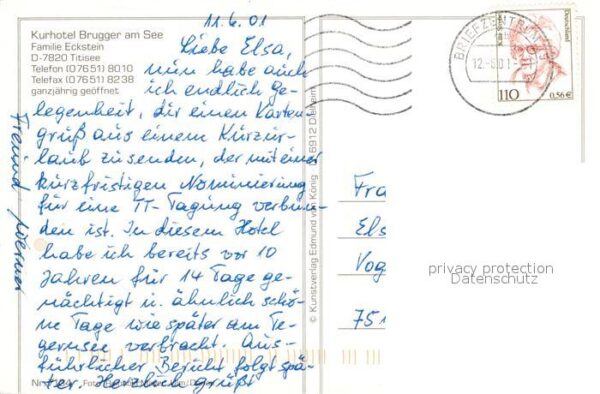 Kurhotel Brugger am See
Familie Eckstein
D-7820 Titisee
Telefon (07651) 8010
Telefax (07651) 8238
ganzjährig geöffnet
11.6.01
Liebe Elsa,
nun habe auch
ich endlich Ge-
legenheit, dir einen Karten-
gruß aus einem Kurzur-
laub zu senden, der mit einer
kurzfristigen Nominierung
für eine TT-Tagung verbun-
den ist. In diesem Hotel
habe ich bereits vor 10
Jahren für 14 Tage ge-
nächtigt u. ähnlich schö-
ne Tage wie später am Te-
gernsee verbracht. Aus-
führlicher Bericht folgt spä-
ter. Herzlich grüßt
Freund Werner
© Kunstverlag Edmund von König 6912 Dielheim
BRIEFZENTRUM
Deutschland
110
0,56 €
Fra
Els
Vog
751
privacy protection
Datenschutz